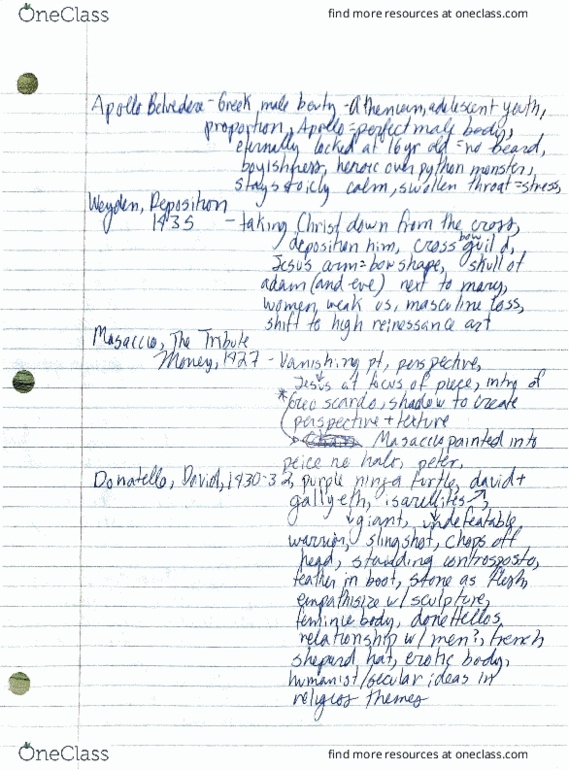 OneClass
find more resources at oneclass.com
Apollo Belvedere - Greek male beuty - Athenium, adelescent youth,
proportion, Apollo = perfect male body,
eternally locked at 16 yr old = no beard,
boyishness, heroic over python monster,
stays stoicly calm, swollen throat = stress,
Weyden, Deposition
1435 - taking Christ down from the cross,
deposition him, cross bow guild,
Jesus arm = bow shape, skull of
adam (and eve) next to mary,
women weak vs, masculine loss,
shift to high reinessance art
Masaccio, The Tribute
Money, 1427 - Vanishing pt, perspective,
Jesus at focus of piece, intry of
* scardo, shadow to create
perspective + texture
Masaccio painted into
peice ne halo, peter,
Donatello, David, 1430-32, purple ninja turtle, david +
gallyeth, isarellites,
giant, undefeatable,
warrior, slingshot, chops off
head, standding controsposto,
feather in boot, stone as flesh,
empathisize w/ sculpture,
feminie body, donetellos
relationship w/ men?, french
sheperd hat, erotic body,
humanist/secular ideas in
religios themes
OneClass
find more resources at oneclass.com